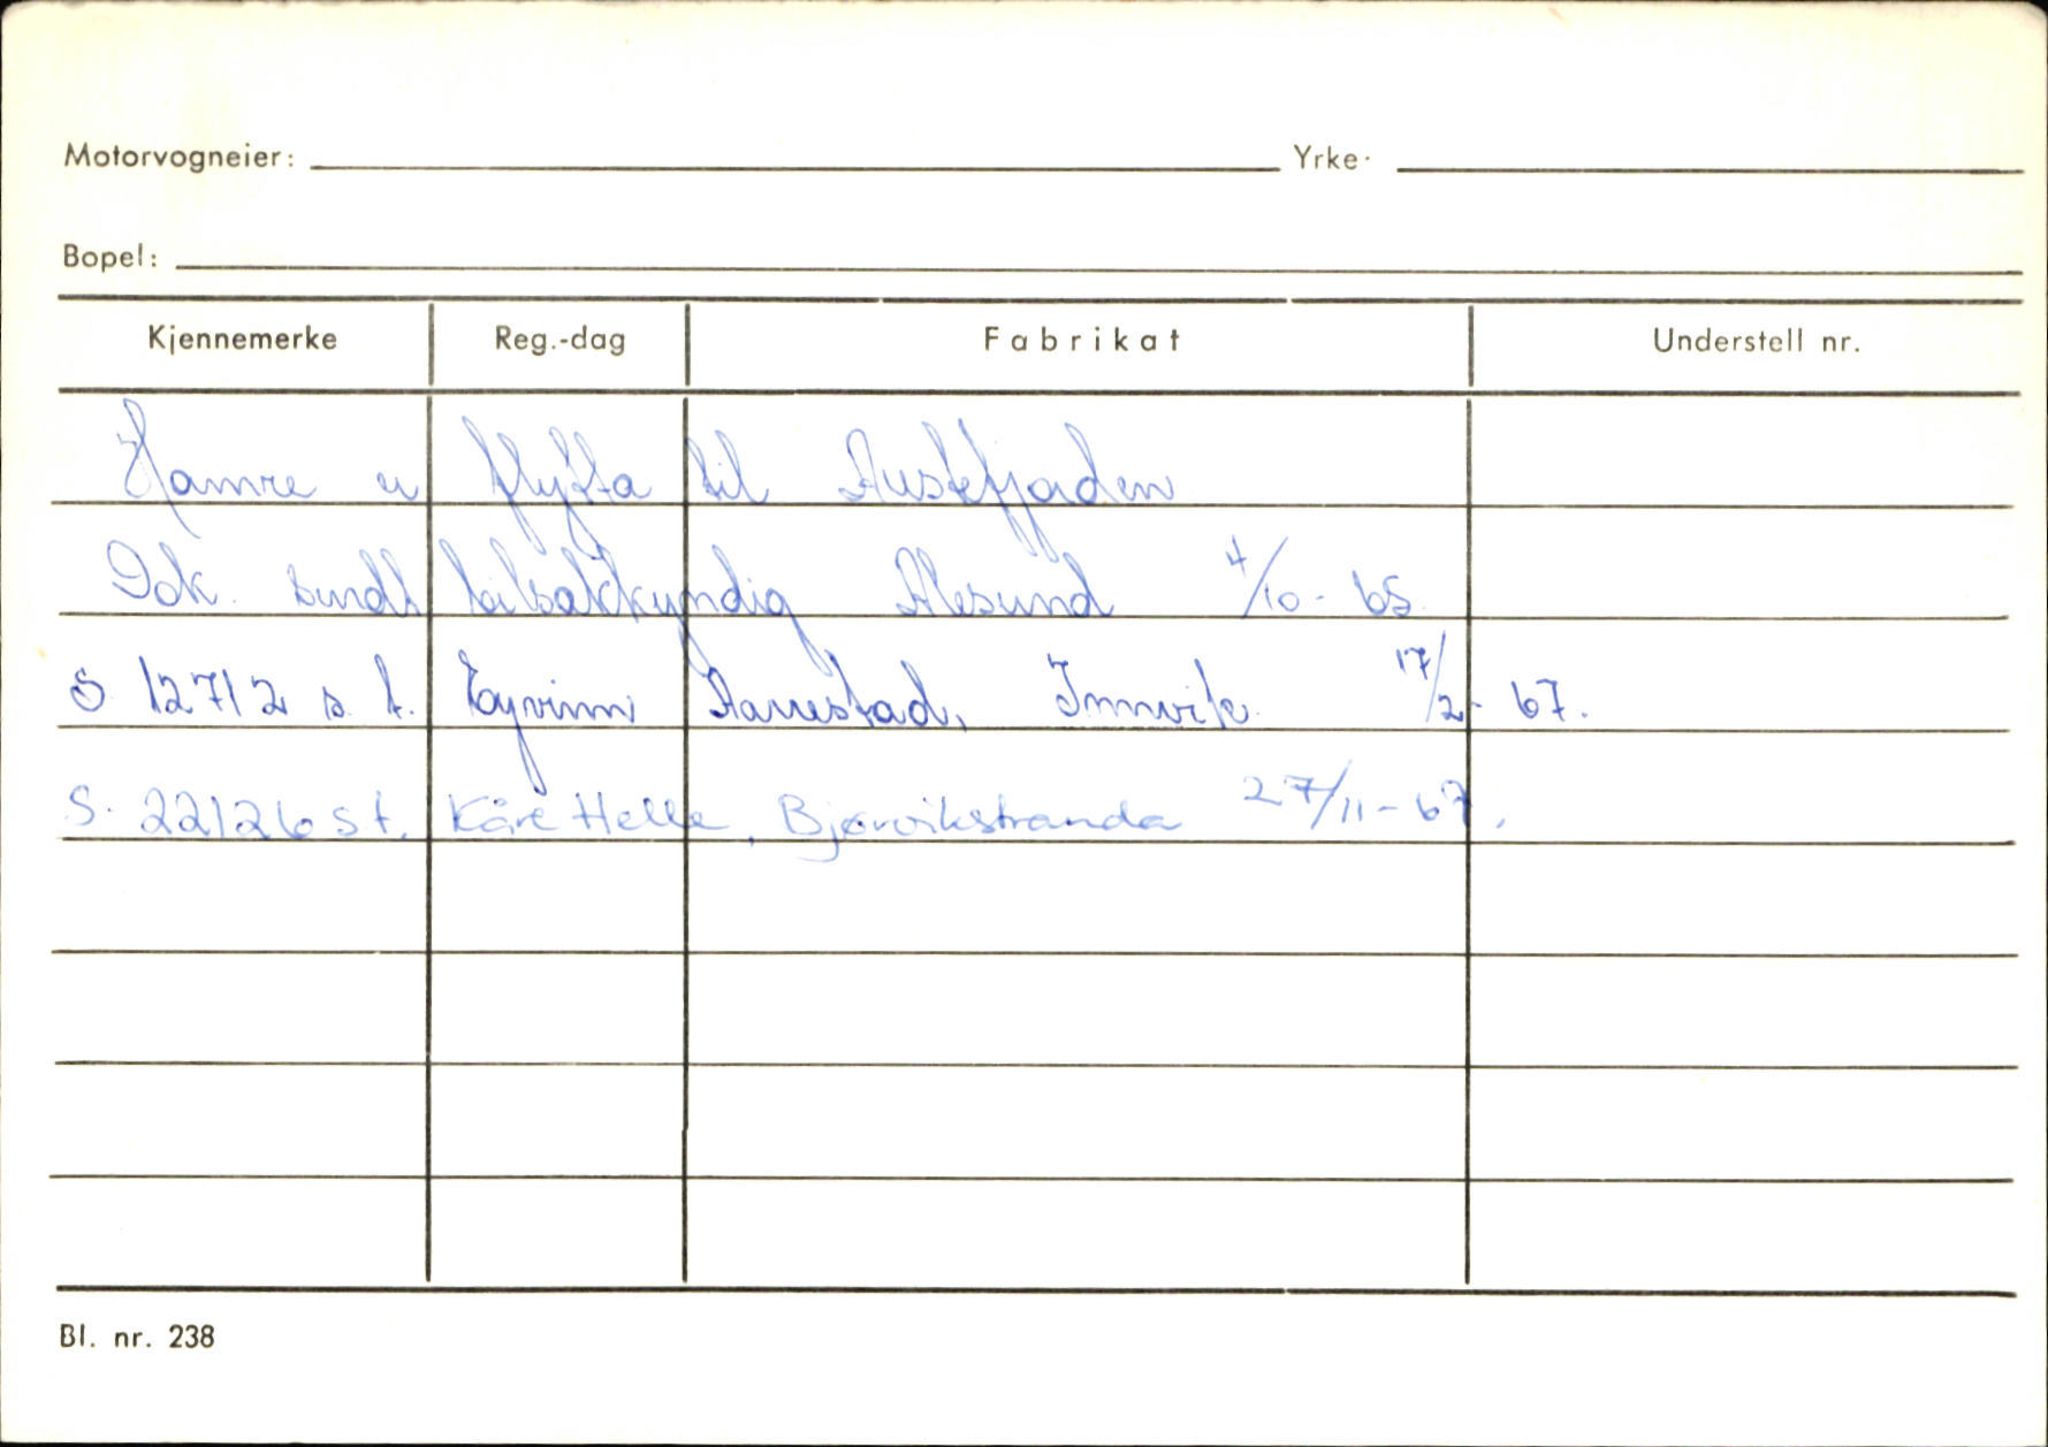 Motorvogneier: Yrke·
Bopel:
Kjennemerke Reg.-dag Fabrikat Understell nr.
Hamre er flytta til Austefjorden
Dok. sendt bilsakkyndig Ålesund 4/10-65
S 12712 s.t. Eyvinn Aarrestad, Innvik 17/2-67.
S. 22126 st. Kåre Helle, Bjørvikstranda 27/11-67.
Bl. nr. 238